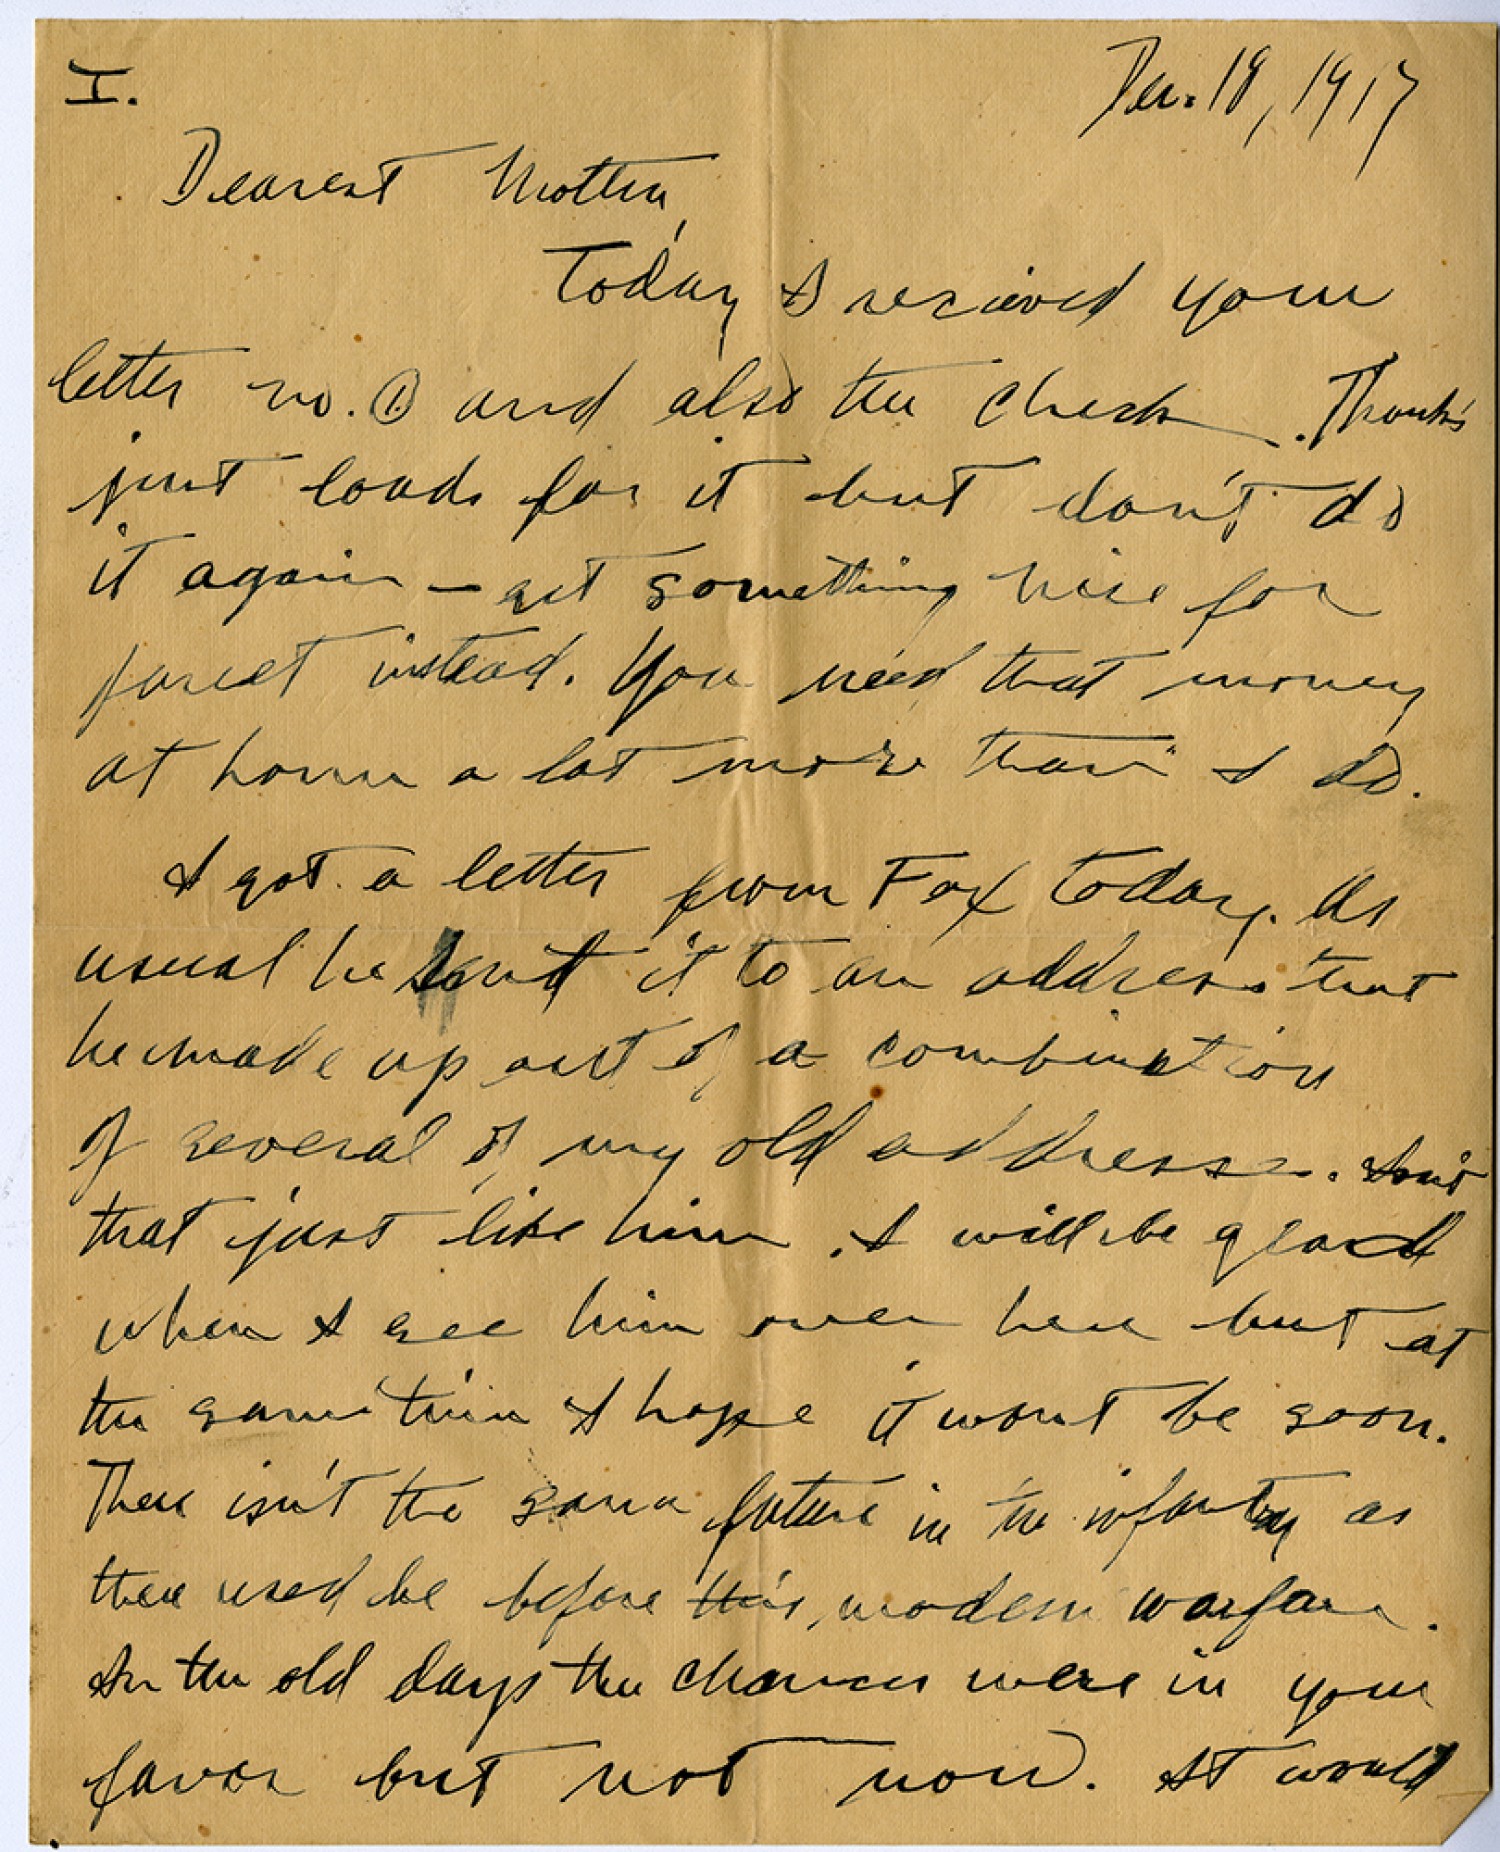 I.
Dec. 18, 1917
Dearest Mother,
Today I recieved your
letter no. 1 and also the check. Thanks
just loads for it but don't do
it again — get something nice for
instead. You need that money
at home a lot more than I do.
I got a letter from Fox today. As
usual he send it to an address that
he made up out of a combination
of several of my old addresses. Isn't
that just like him. I will be glad
when I see him over here but at
the same time I hope it wont be soon.
There isn't the same future in the infantry as
there used be before this modern warfare.
In the old days the chances were in your
favor but not now. It would